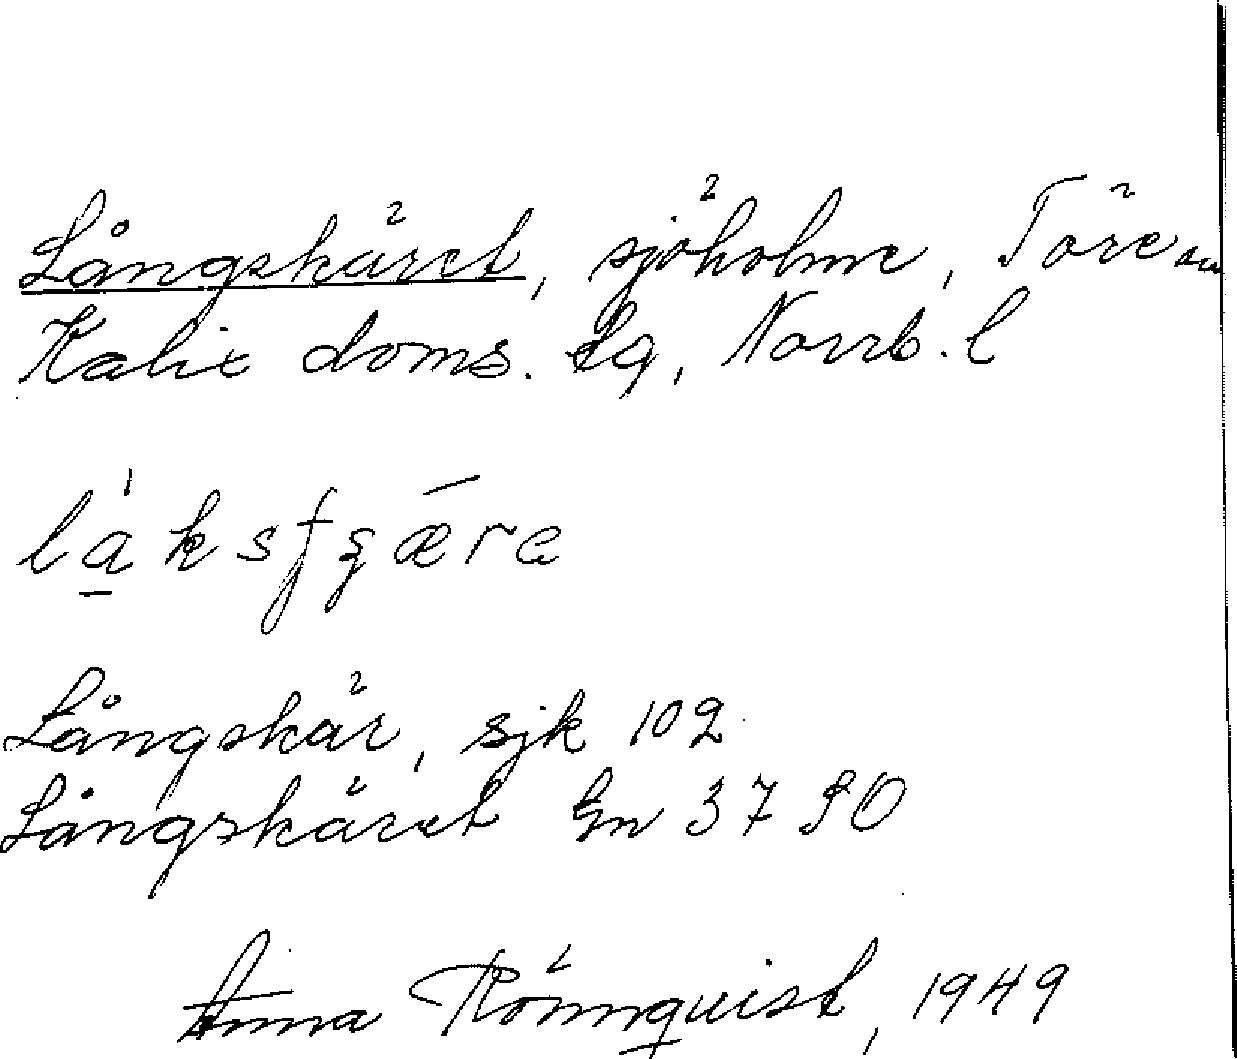 Långskäret, sjöholme, Töre sn
Kalix doms. lg, Norrb. l
la̱ksfgǣre
Långskär, sjk 102
Långskäret Gn 3790
Anna Rönnquist, 1949